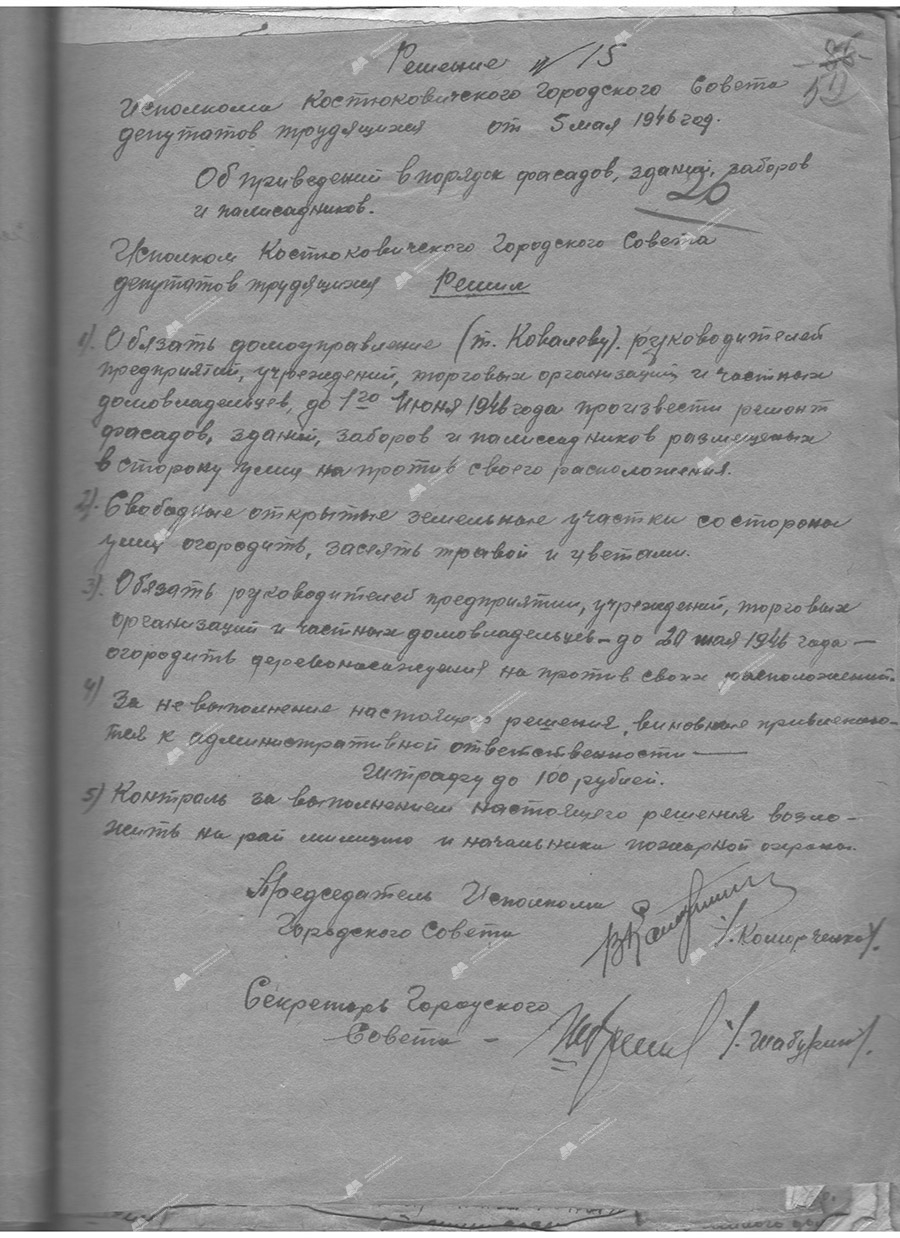 Решение № 15
86
50
Исполкома Костюковичского Городского Совета
депутатов трудящихся от 5 мая 1946 год.
Об приведений в порядк фасадов, зданий, заборов
20
и палисадников.
Исполком Костюковичского Городского Совета
депутатов трудящихся Решил
1). Обязать домоуправление (т. Ковалеву). руководителей
предприятий, учреждений, торговых организаций и частных
домовладельцев, до 1го Июня 1946 года произвести ремонт
фасадов, зданий, заборов и палиссадников размещеных
в сторону улиц на против своего расположения.
2). Свободные открытые земельные участки со стороны
улиц огородить, засеять травой и цветами.
3). Обязать руководителей предприятии, учреждений, торговых
организаций и частных домовладельцев – до 20 мая 1946 года –
огородить деревонасаждения на против своих расположений.
4) За не выполнение настоящего решения, виновные привлекаю-
тся к административной ответственности —
Штрафу до 100 рублей.
5) Контроль за выполнением настоящего решения возло-
жить на рай милицию и начальника пожарной охраны.
Председатель Исполкома
Городского Совета /. Коморченко/.
Секретарь Городского
Совета – /. Шабуркин/.